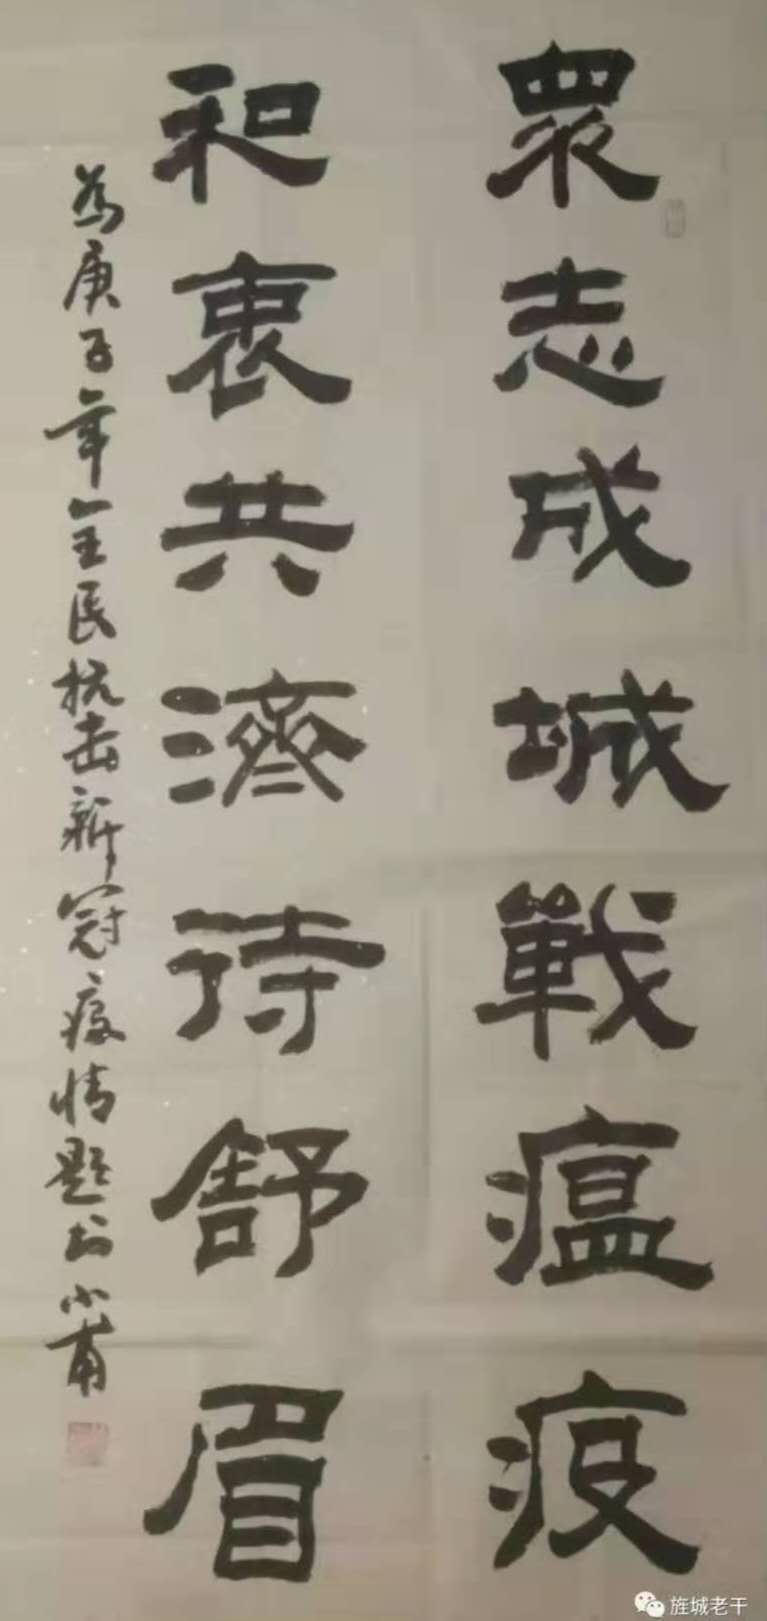 眾志成城戰瘟疫
和衷共濟待舒眉
為庚子年全民抗击新冠疫情题书小甫
旌城老干